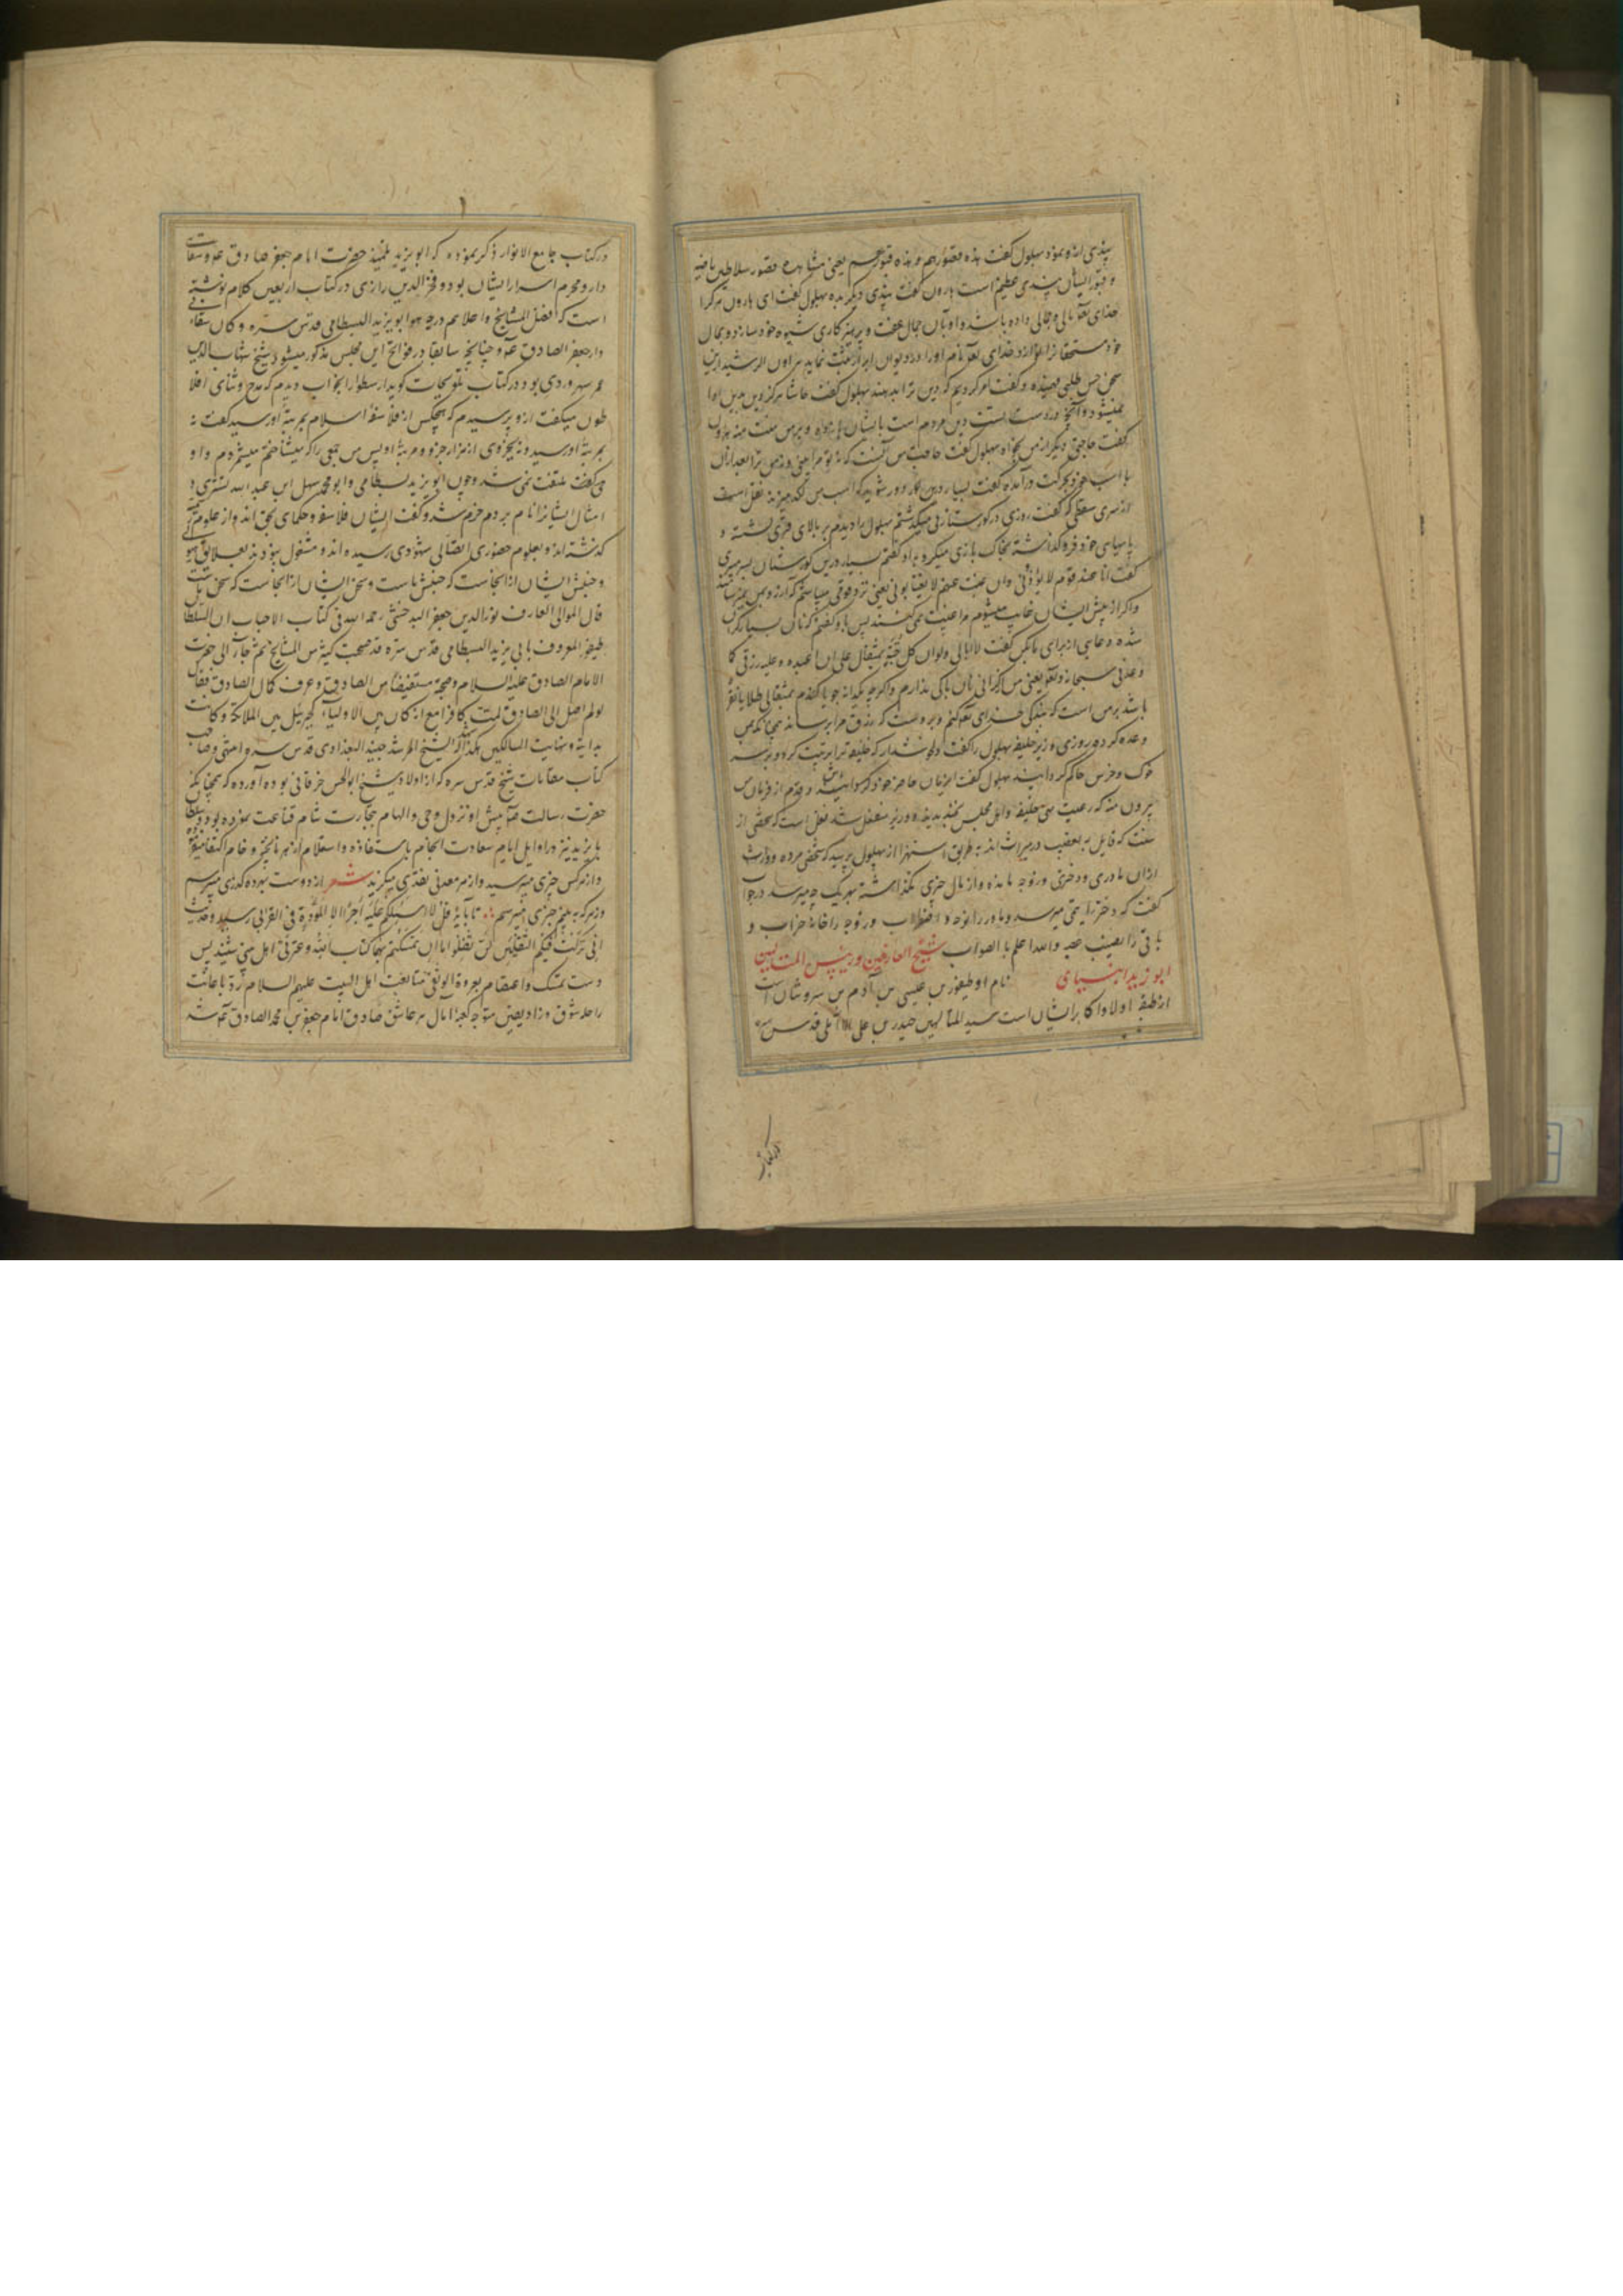 پندی ازو نمود بهلول گفت هذه قصورهم و هذه قبورهم یعنی مشاهده قصور سلاطین ماضیه
و قبور ایشان پندی عظیم است هارون گفت پندی دیگر بده بهلول گفت ای هارون هر کرا
خدای تعالی مالی و جمالی داده باشد و او بآن جمال عفت و پرهیزکاری شیوه خود سازد و بمال
خود مستحقان را نوازد خدای تعالی نام او را در دیوان ابرار ثبت نماید هارون الرشید ازین
سخن حسن طلبی فهمیده و گفت امر کردیم که دین ترا بدهند بهلول گفت حاشا هرگز دین بدین ادا
نمیشود و آنچه در دست تست دین مردم است بایشان باز ده و بر من منت منه هارون
گفت حاجتی دیگر از من بخواه بهلول گفت حاجت من آنست که نه تو مرا بینی و نه من ترا بعد از آن
با اسب خود بحرکت درآمده گفت
از سری سقطی که گفت روزی در گورستان میگذشتم بهلول را دیدم بر بالای قبری نشسته و
پاهای خود فرو گذاشته بخاک بازی میکرد باو گفتم بسیار درین گورستان بسر میبری
گفت انا عند قوم لا یؤذونی و ان غبت عنهم لا یغتابونی یعنی نزد قومی میباشم که آزار بمن نمیرسانند
و اگر از پیش ایشان غایب میشوم مرا غیبت نمی کنند پس باو گفتم که نان بسیار گران
شده دعایی از برای ما بکن گفت لا ابالی ولو ان کل حبة بمثقال علی ان اعبده و علیه رزقی کما
وعدنی سبحانه و تعالی یعنی من از گرانی نان باکی ندارم و اگر چه یکدانه جو یا گندم بمثقالی طلا یا نقره
باشد بر من است که بندگی خدای تعالی کنم و بر وست که رزق مرا برساند همچنانکه بمن
وعده کرده روزی وزیر خلیفه بهلول را گفت دلخوش دار که خلیفه ترا تربیت کرد و بر سر
خوک و خرس حاکم گردانید بهلول گفت این زمان حاضر خود گرد و قدم از فرمان من
بیرون منه که رعیت منی خلیفه و اهل مجلس بخندیدند و وزیر منفعل شد نقل است که شخصی از
سنت که قایل به تعصیب در میراث اند به طریق استهزا از بهلول پرسید که شخصی مرده و وارث
او ازان مادری و دختری و زوجه مانده و از مال چیزی نگذاشته بهر یک چه میرسد در جواب
گفت که دختر را یتیمی میرسد و مادر را نوحه و اضطراب و زوجه را خانه خراب و
باقی را نصیب عصبه و الله اعلم بالصواب شیخ العارفین و رئیس المتالهین
ابو یزید البسطامی نام او طیفور بن عیسی بن آدم بن سروشان است
از طبقه اولا و اکابر ایشان است سید المتالهین حیدر بن علی الآملی قدس سره
در کتاب
در کتاب جامع الانوار ذکر نموده که ابو یزید تلمیذ حضرت امام جعفر صادق ع و سقا
دار و محرم اسرار ایشان بود و فخر الدین رازی در کتاب اربعین کلام نوشته
است که افضل المشایخ و اعلاهم درجة هو ابو یزید البسطامی قدس سره و کان سقاء فی
دار جعفر الصادق ع و چنانچه سابقا در فواتح این مجلس مذکور میشود شیخ شهاب الدین
عمر سهروردی بود در کتاب تلویحات گوید ارسطو را بخواب دیدم که مدح و ثنای افلا
طون میگفت ازو پرسیدم که هیچکس از فلاسفه اسلام بمرتبه او رسید گفت نه
بمرتبه او رسید و نه بجزوی از هزار جزو مرتبه او پس من جمعی را که میشناختم میشمردم و او
ملتفت نمی شد و چون ابو یزید بسطامی و ابو محمد سهل ابن عبد الله تستری و
امثال ایشان را نام بردم خرم شد و گفت ایشان فلاسفه و حکمای بحق اند و از علوم رسمی
گذشته اند و بعلوم حضوری اتصالی شهودی رسیده اند و مشغول نبودند بعلایق هیولی
و جنبش ایشان از آنجاست که جنبش ماست و سخن ایشان از آنجاست که سخن ماست
قال الموالی العارف نور الدین جعفر البدخشی رحمه الله فی کتاب الاحباب ان السلطان
طیفور المعروف بابی یزید البسطامی قدس سره قد صحب کثیر من المشایخ ثم جاء الی حضرت
الامام الصادق علیه السلام و صحبه مستفیضا من الصادق و عرف کمال الصادق فقال
لو لم اصل الی الصادق لمت کافرا مع انه کان بین الاولیاء کجبرئیل بین الملائکة و کانت
بدایته نهایت السالکین هکذا ذکر الشیخ المرشد جنید البغدادی قدس سره انتهی و صاحب
کتاب مقامات شیخ قدس سره که از اولاد شیخ ابو الحسن خرقانی بوده آورده که همچنانکه
حضرت رسالت ص پیش از نزول وحی و الهام بتجارت شام قناعت نموده بود سلطان
بایزید نیز در اوایل ایام سعادت انجام باستفاده و استعلام از هر پخته و خام اکتفا مینمود
و از هر کس چیزی میپرسید و از هر معدنی نقدی میگزید شعر از دوست بهرده گذری میپرسم
وز هر که ببینم خبری میپرسم تا بآیه قل لا اسئلکم علیه اجرا الا المودة فی القربی رسید و حدیث
انی ترکت فیکم الثقلین لن تضلوا ما ان تمسکتم بهما کتاب الله و عترتی اهل بیتی شنید پس
دست تمسک و اعتصام بعروة الوثقی متابعت اهل البیت علیهم السلام زده باعانت
راحله شوق و زاد یقین متوجه کعبه آمال هر عاشق صادق امام جعفر بن محمد الصادق ع شد